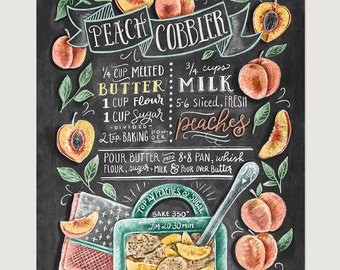 PEACH COBBLER
1/4 CUP MELTED
BUTTER
1 CUP Flour
1 CUP Sugar
DIVIDED
2 tsp. BAKING POWDER
3/4 cups
MILK
5-6 sliced, FRESH
peaches
POUR BUTTER INTO 8x8 PAN, whisk
FLOUR, sugar, MILK & POUR OVER BUTTER
TOP W/ PEACHES & SUGAR
BAKE 350°
for 20-30 min